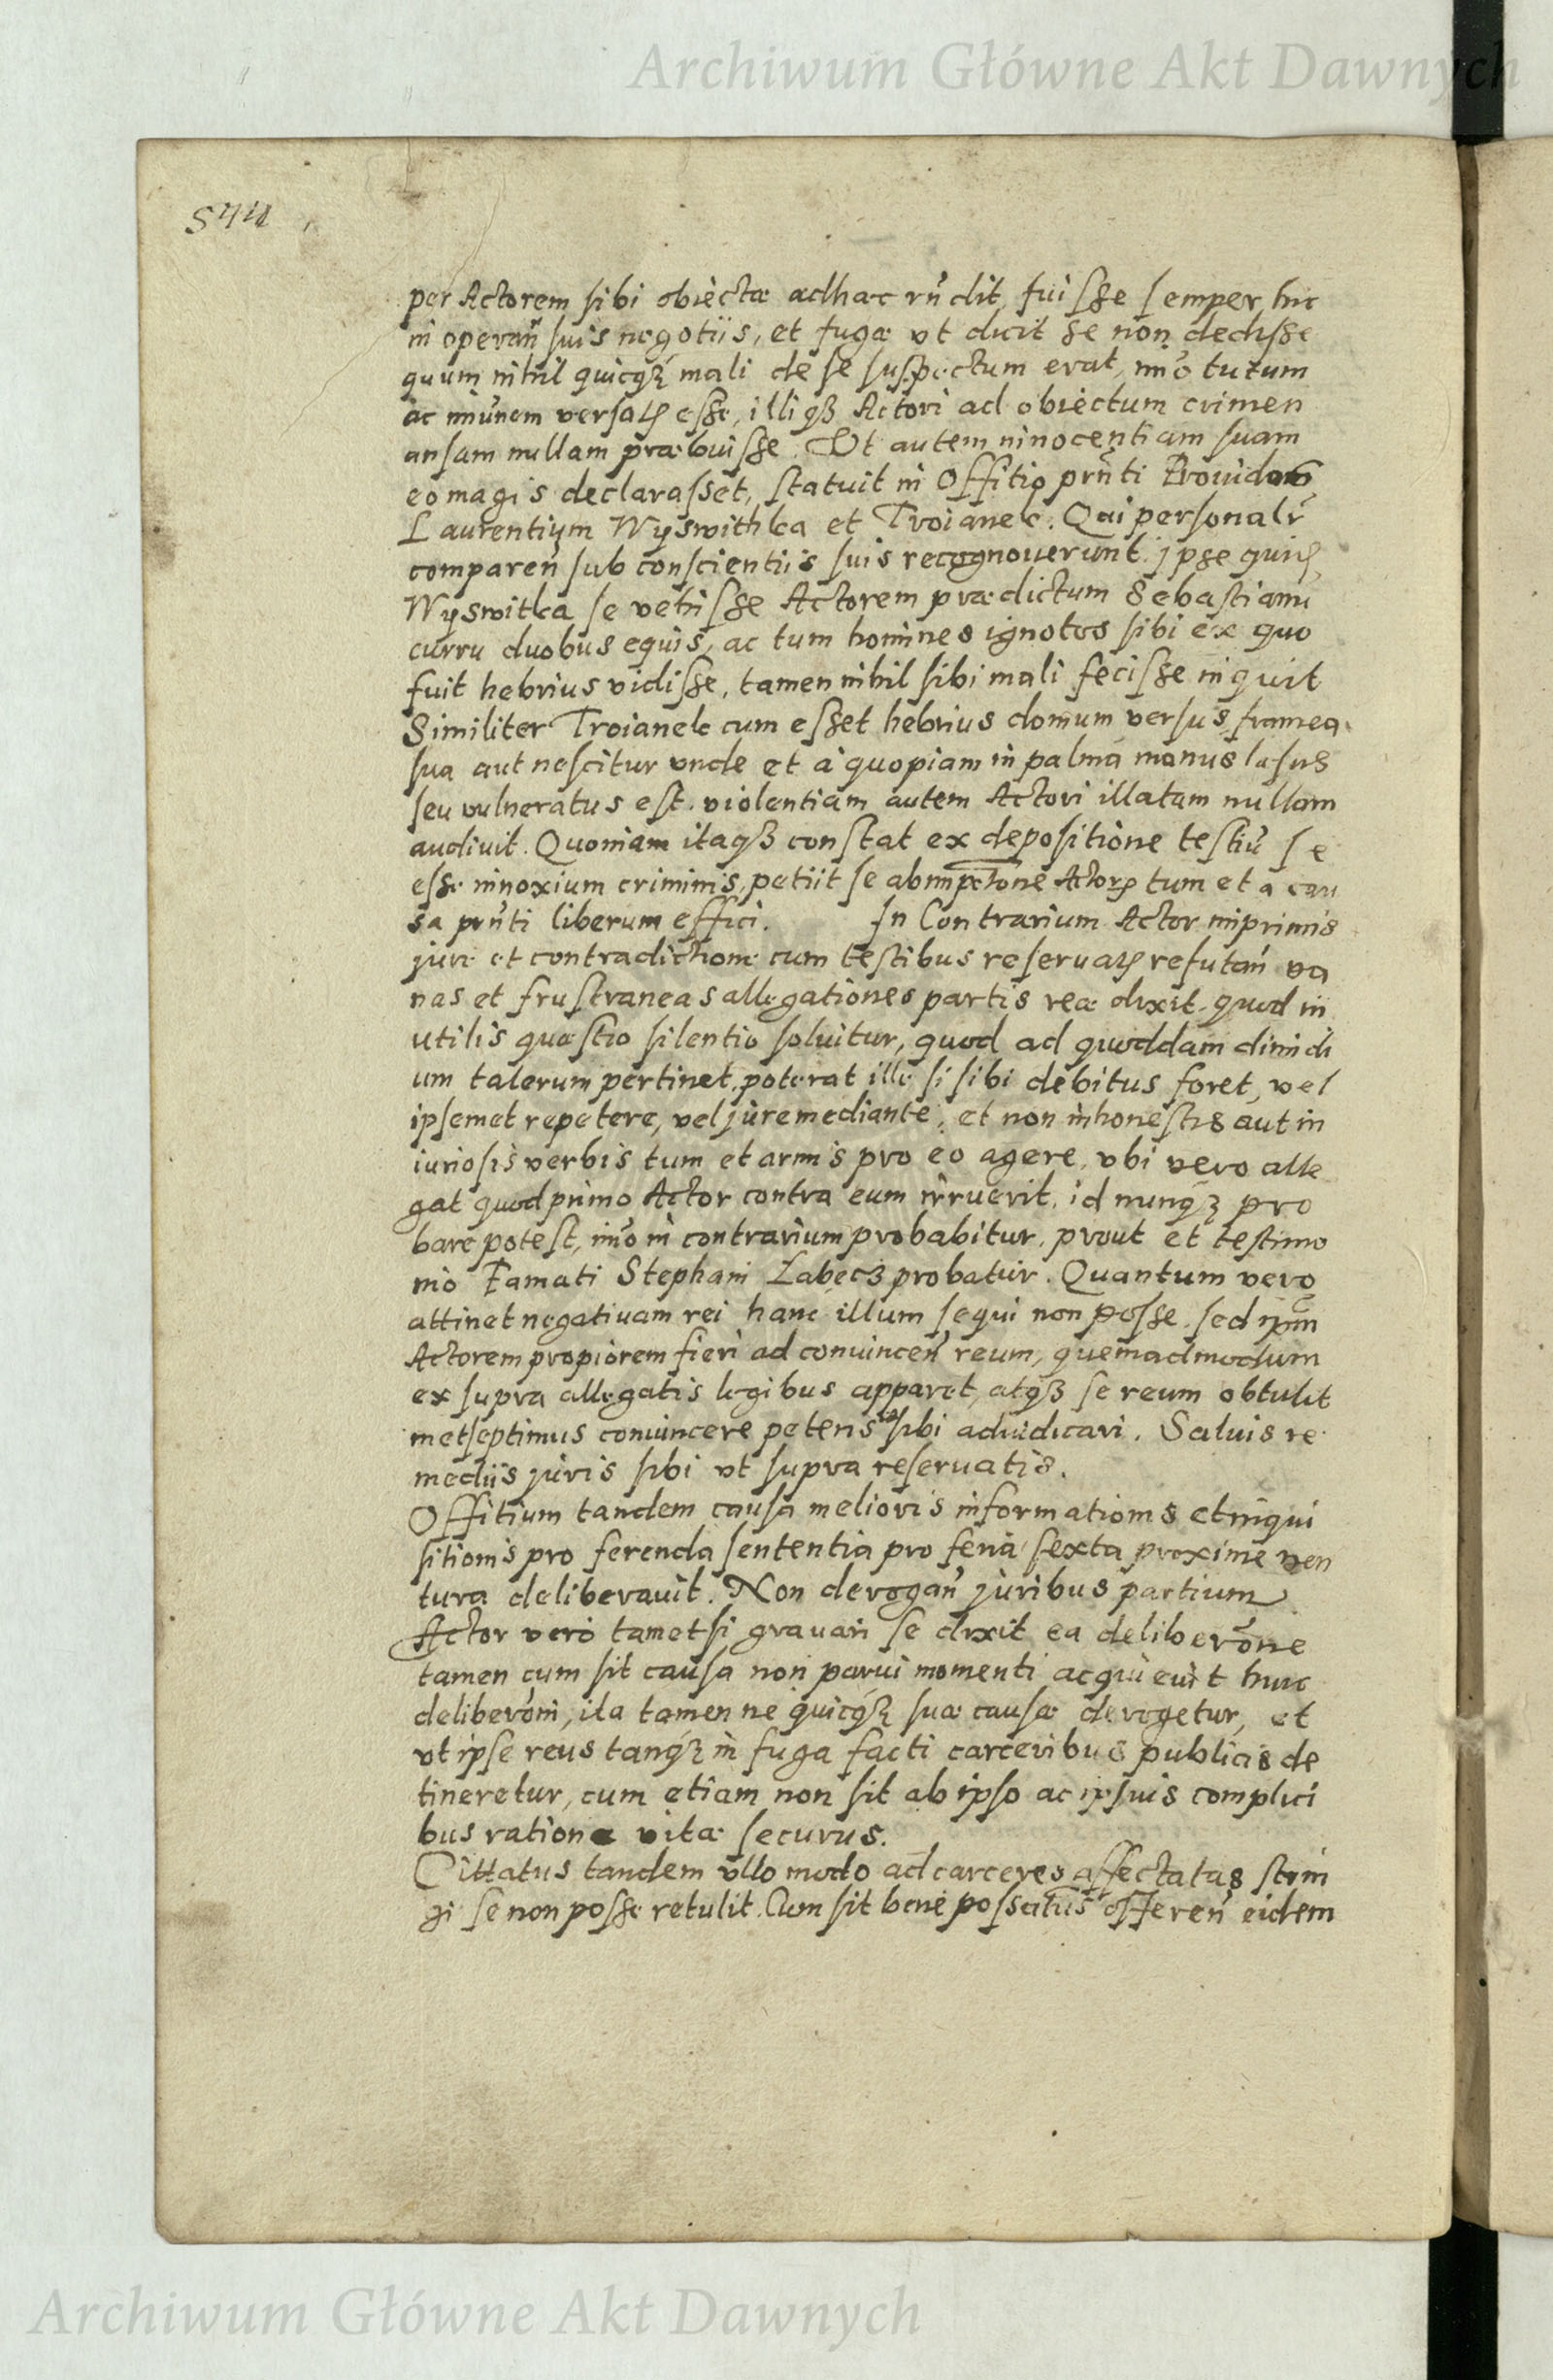 Archiwum Główne Akt Dawnych
per Actorem sibi obiecta adhæc rñdit, fuisse semper hic
in operan̄ suis negotiis, et fugæ vt dicit se non dedisse
quum nihil quicq́ʒ mali de se suspectum erat, im̄o tutum
ac im̄unem versatꝭ esse, illiqʒ Actori ad obiectum crimen
ansam nullam præbuisse. Vt autem innocentiam suam
eo magis declarasset, statuit in Offitio prn̄ti Prouidos
Laurentium Wyswithka et Troianek. Qui personalr̄
comparen̄ sub conscientiis suis recognouerunt. jpse quidꝭ
Wyswitka se vehisse Actorem prædictum Sebastianū
curru duobus equis, ac tum homines ignotos sibi ex quo
fuit hebrius vidisse, tamen nihil sibi mali fecisse inquit
Similiter Troianek cum esset hebrius domum versus, framea
sua aut nescitur vnde et à quopiam in palma manus læsus
seu vulneratus est. violentiam autem Actori illatam nullam
audiuit. Quoniam itaqʒ constat ex depositione testiū se
esse innoxium criminis, petiit se ab imp̄ctione Actorꝭ tum et a cau
sa prn̄ti liberum effici. In Contrarium Actor inprimis
jure et contradictione cum testibus reseruatꝭ refutan̄ va
nas et frustraneas allegationes partis reæ dixit. quod in
utilis quæstio silentio soluitur, quod ad quoddam dimidi
um talerum pertinet, poterat ille si sibi debitus foret, vel
ipsemet repetere, vel jure mediante, et non inhonestis aut in
iuriosis verbis tum et armis pro eo agere, vbi vero alle
gat quod primo Actor contra eum irruerit. id nunq́ʒ pro
bare potest, im̄o in contrarium probabitur. prout et testimo
nio Famati Stephani Labęcʒ probatur. Quantum vero
attinet negatiuam rei hanc illum sequi non posse. sed ip̄m
Actorem propiorem fieri ad conuincen̄ reum, quemadmodum
ex supra allegatis legibus apparet, atqʒ se reum obtulit
metseptimus conuincere petens sibi adiudicari. Saluis re
mediis juris sibi vt supra reseruatis.
Offitium tandem causa melioris informationis et inqui
sitionis pro ferenda sententia pro feria sexta proxime ven
tura deliberauit. Non derogan̄ juribus partium
Actor vero tametsi grauari se dixit ea deliber̄one
tamen cum sit causa non parui momenti acquieuit huic
deliber̄oni, ita tamen ne quicq́ʒ suæ causæ derogetur, et
vt ipse reus tanq́ʒ in fuga facti carceribus publicis de
tineretur, cum etiam non sit ab ipso ac ipsius complici
bus ratione vitæ securus.
Cittatus tandem vllo modo ad carceres affectatas strin
gi se non posse retulit. Cum sit bene possatus offeren̄ eidem
Archiwum Główne Akt Dawnych